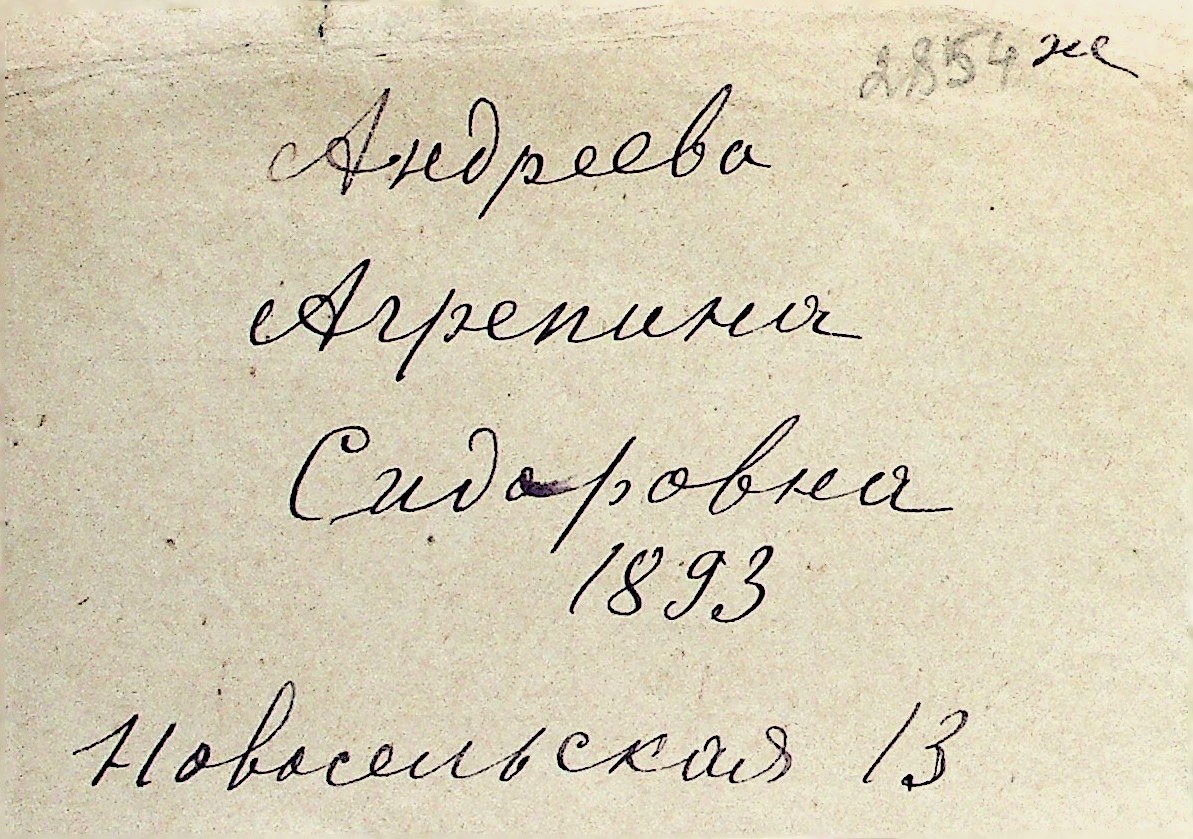 2854 же
Андреева
Агрепина
Сидоровна
1893
Новосельская 13